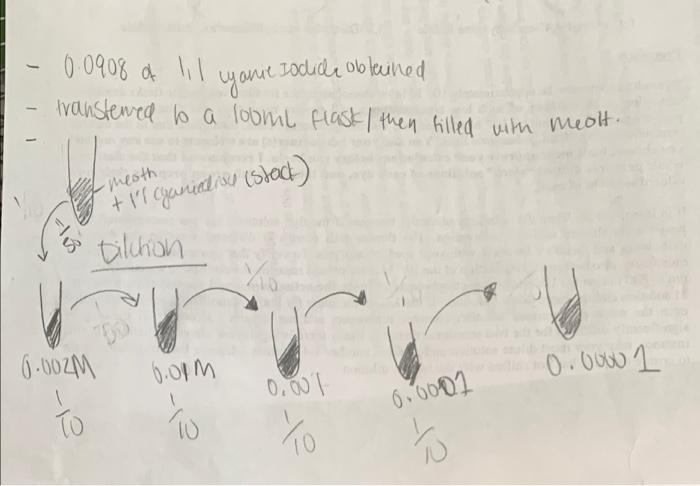 - 0.0908 of 1,1 cyanie Iodide obtained
- transferred to a 100mL flask / then filled with MeOH.
-
meoth
+ 1'1 (stock)
1/50
Dilution
1/10
0.002M 0.01M 0.001 0.0001 0.00001
1/10 1/10 1/10 1/10